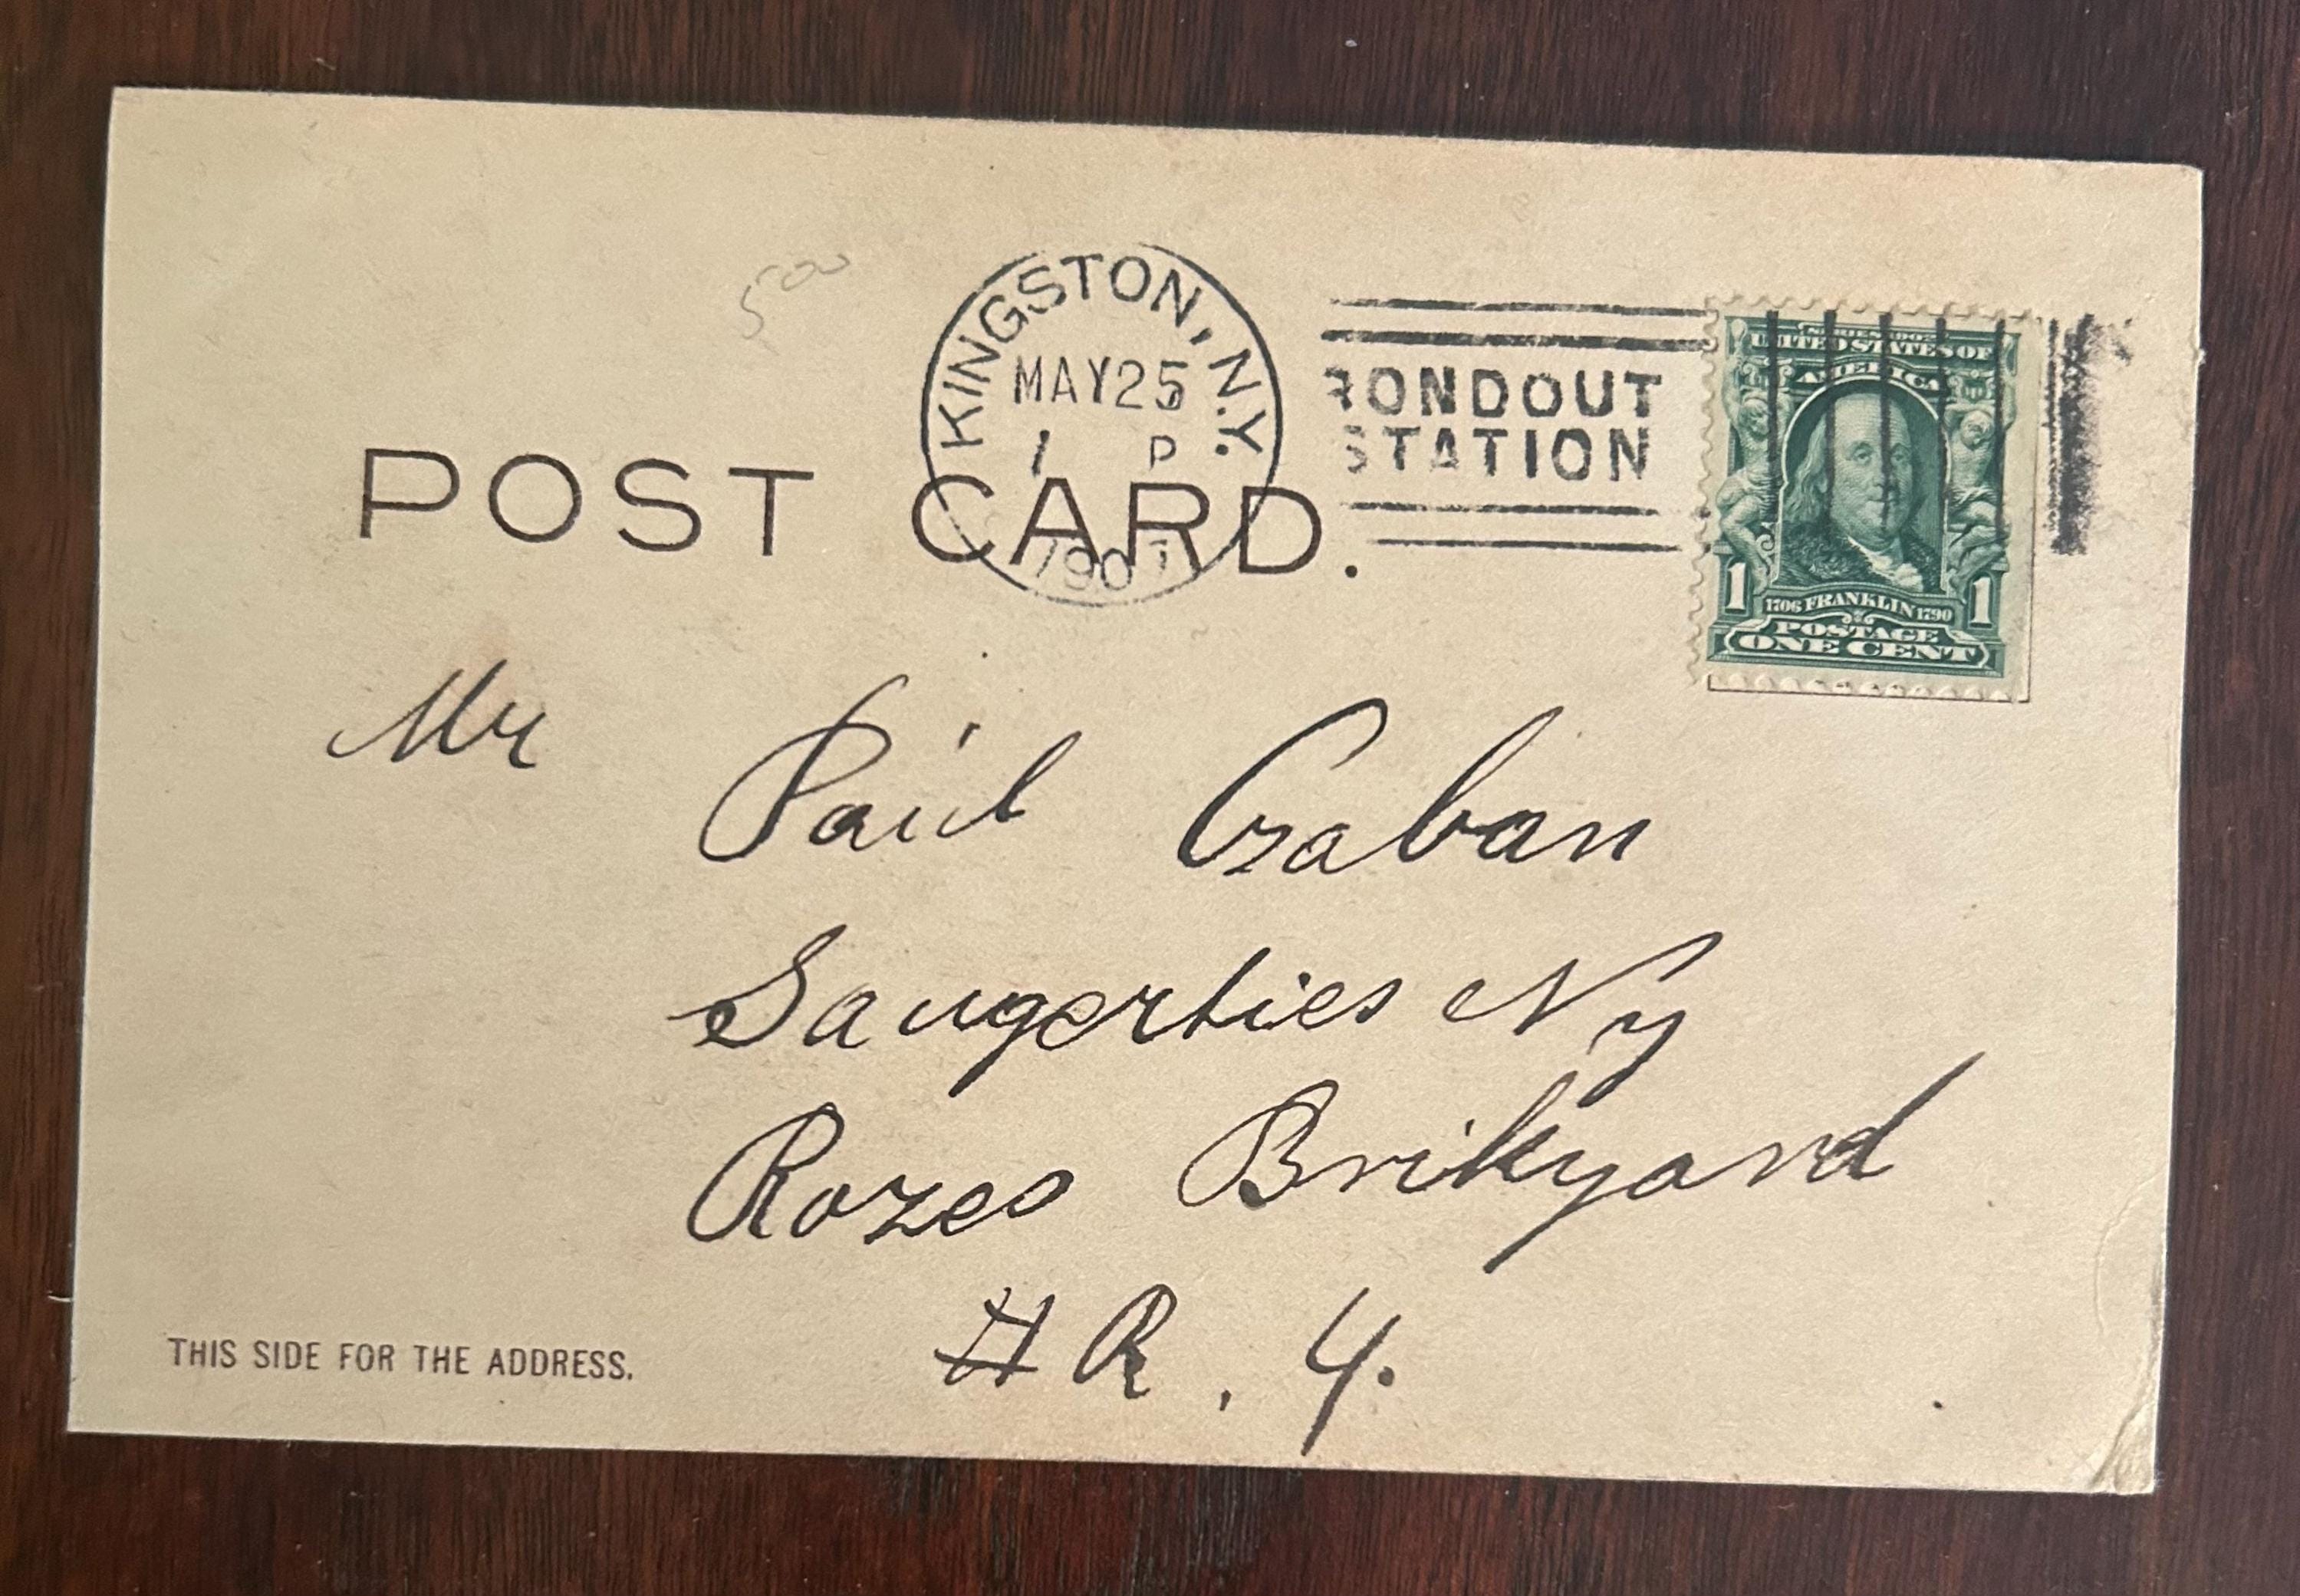 500
KINGSTON, N.Y.
MAY 25
1 P
190
RONDOUT
STATION
SERIES 1902
UNITED STATES OF
AMERICA
1 1706 FRANKLIN 1790 1
POSTAGE
ONE CENT
POST CARD.
Mr Paul Czaban
Saugerties Ny
Rozes Brikyard
R. 4.
THIS SIDE FOR THE ADDRESS.